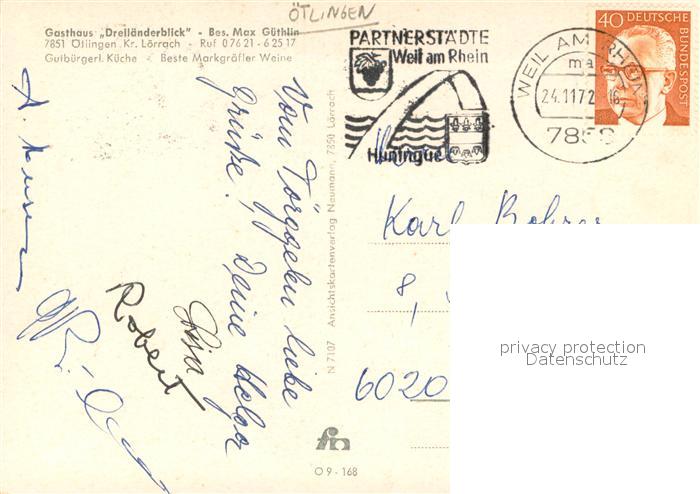 ÖTLINGEN
Gasthaus „Dreiländerblick" - Bes. Max Güthlin
7851 Ötlingen Kr. Lörrach - Ruf 0 76 21 - 6 25 17
Gutbürgerl. Küche - Beste Markgräfler Weine
PARTNERSTÄDTE
Weil am Rhein
Huningue
WEIL AM RHEIN
24.11.72
7858
40 DEUTSCHE
BUNDESPOST
Vom Törggelen liebe
Grüße! Deine Helga
Robert
N 7107 Ansichtskartenverlag Neumann, 7850 Lörrach
Karl
8,
6020
privacy protection
Datenschutz
fn
O 9 - 168